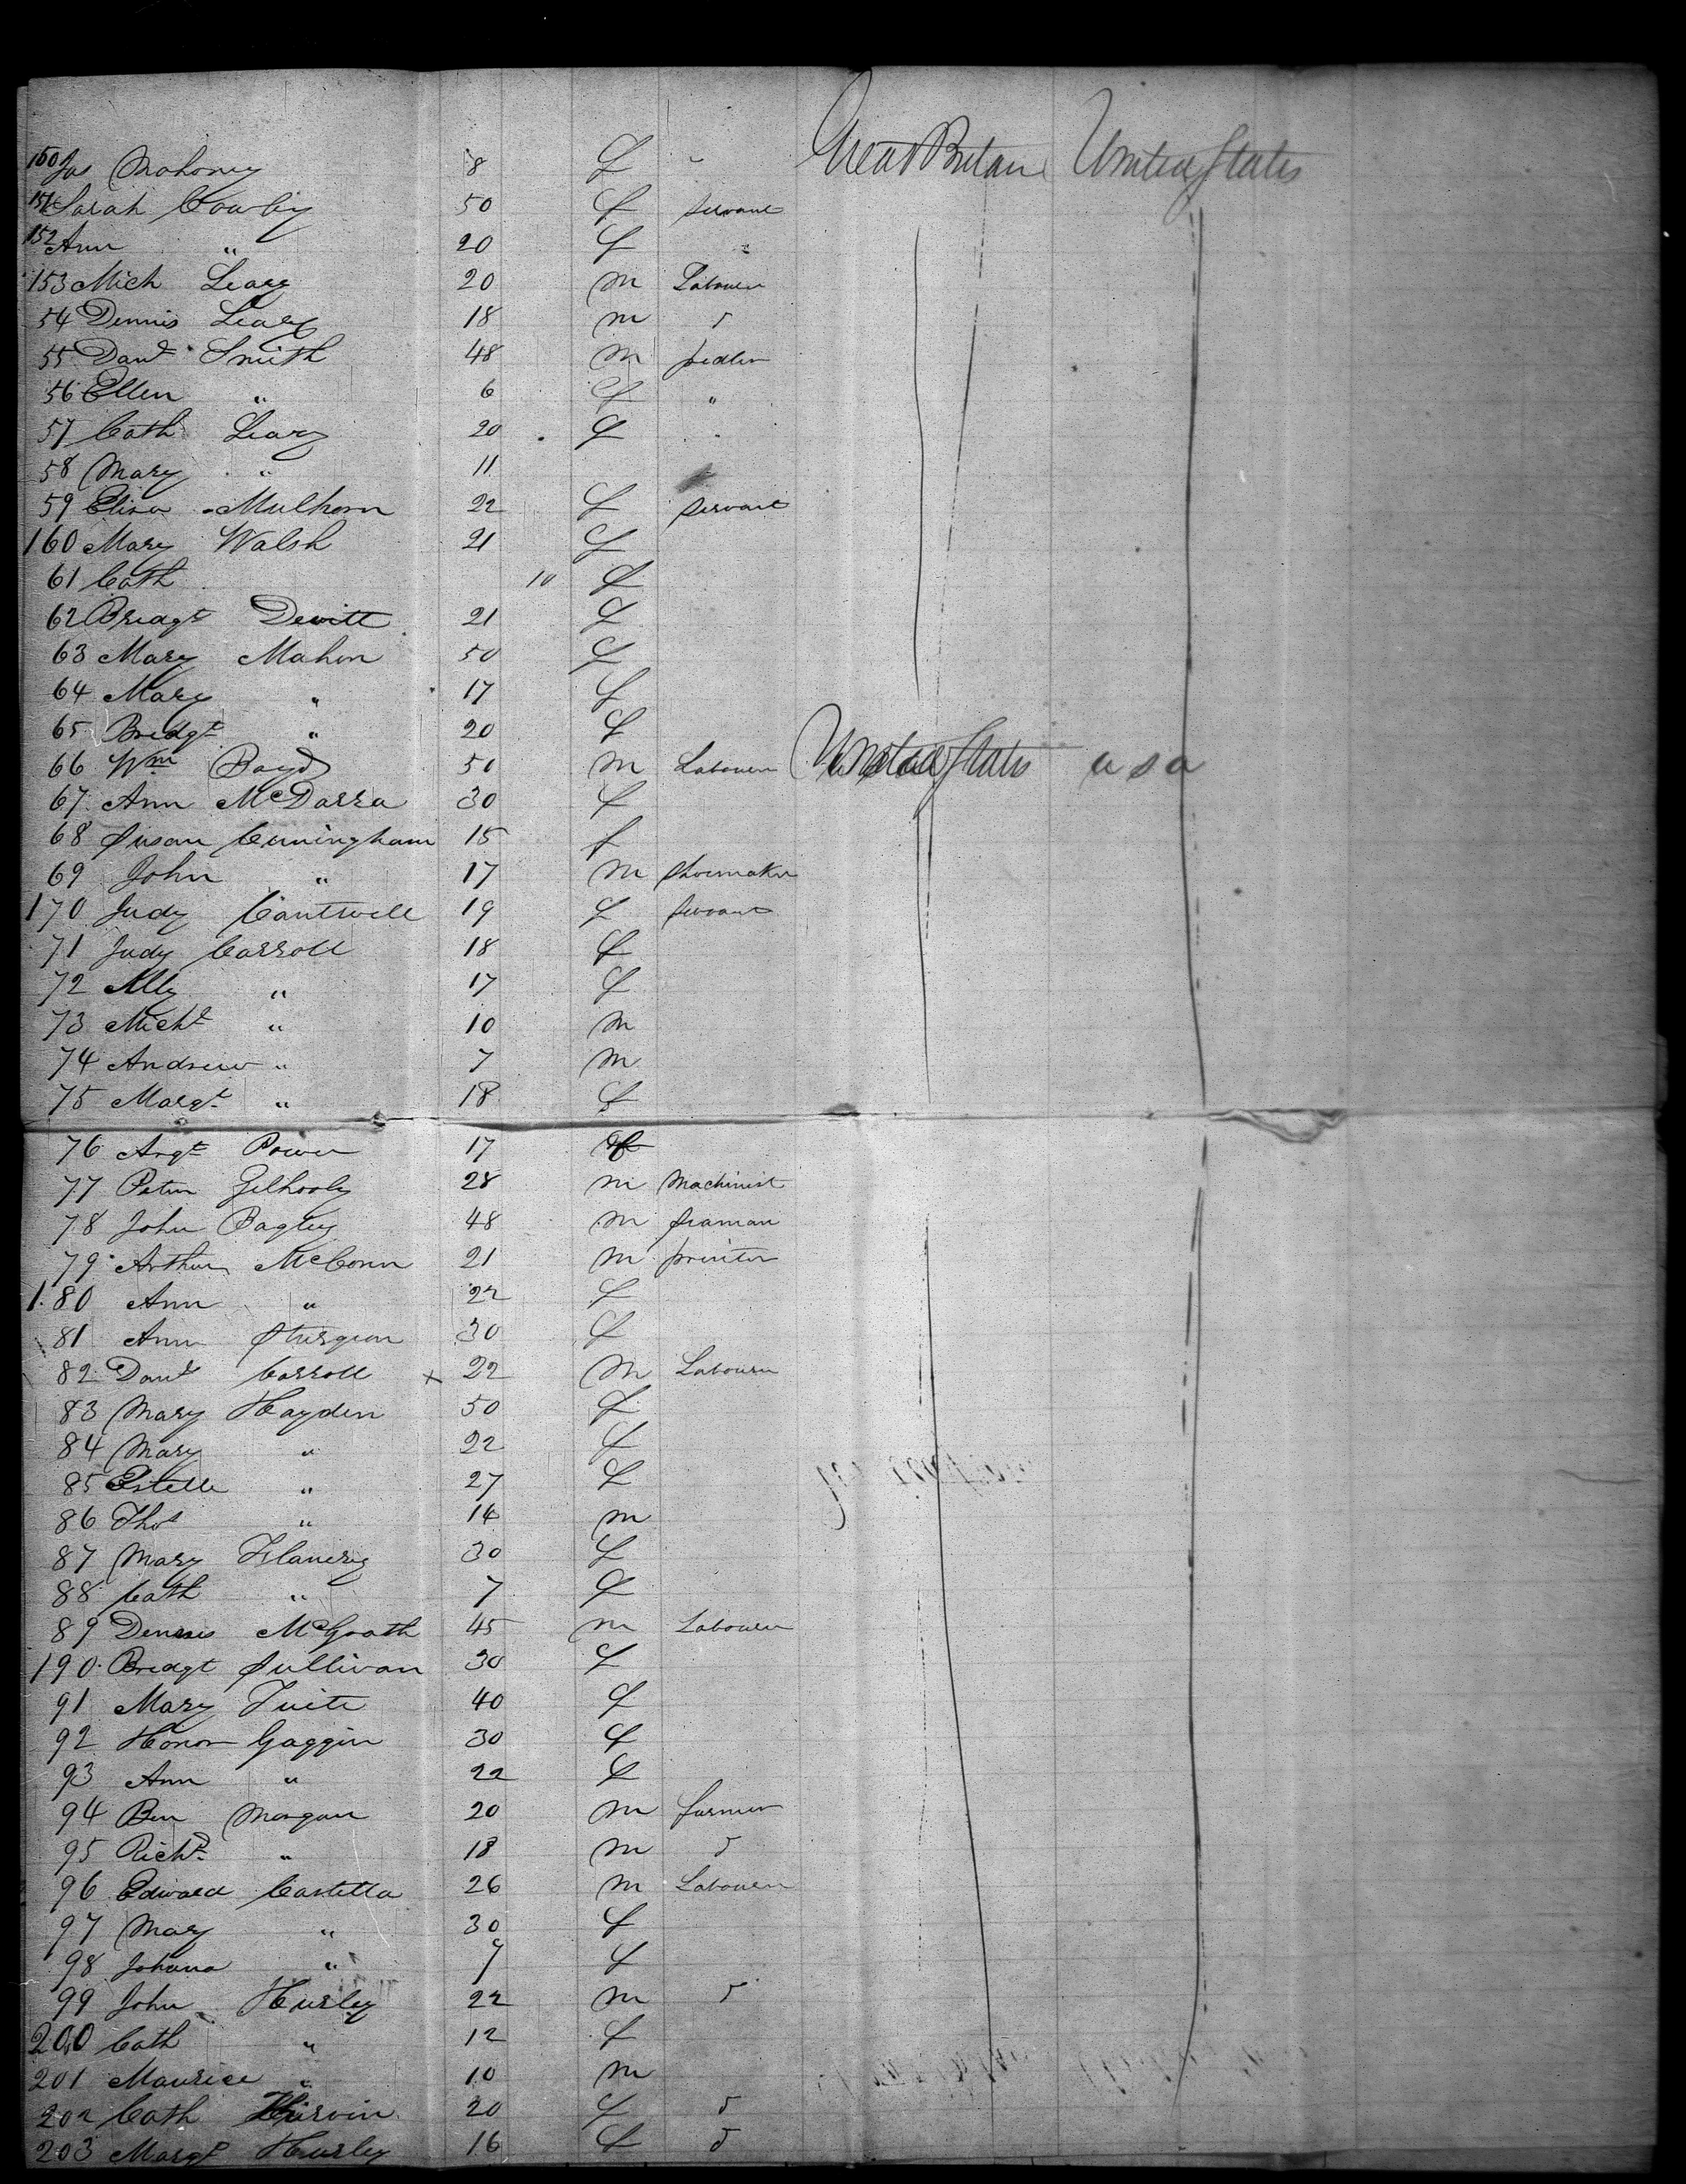 150 Jas Mahoney 8 f " Great Britain United States
151 Sarah Cowley 50 f Servant
152 Ann " 20 f "
153 Mich Leary 20 m Labourer
54 Dennis Leary 18 m d
55 Danl Smith 48 m pedler
56 Ellen " 6 f "
57 Cath Leary 20 f "
58 Mary " 11
59 Eliza Mulhorn 22 f Servant
160 Mary Walsh 21 f
61 Cath 10 f
62 Bridgt Devitt 21 f
63 Mary Mahon 50 f
64 Mary " 17 f
65 Bridgt " 20 f
66 Wm Boyd 50 m Labourer United States U S a
67 Ann McDarra 30 f
68 Susan Cuningham 15 f
69 John " 17 m Shoemaker
170 Judy Cantwell 19 f Servant
71 Judy Carroll 18 f
72 Ally " 17 f
73 Michl " 10 m
74 Andrew " 7 m
75 Margt " 18 f
76 Argt Power 17 f
77 Peter Gilhooly 28 m Machinist
78 John Bagley 48 m Seaman
79 Arthur McConn 21 m printer
180 Ann " 22 f
81 Ann Sturgeon 30 f
82 Danl Carroll x 22 m Labourer
83 Mary Hayden 50 f
84 Mary " 22 f
85 Estelle " 27 f
86 Thos " 14 m
87 Mary Flanery 30 f
88 Cath " 7 f
89 Dennis McGrath 45 m Labourer
190 Bridgt Sullivan 30 f
91 Mary Tuite 40 f
92 Honor Gaggin 30 f
93 Ann " 22 f
94 Ben Morgan 20 m farmer
95 Richd " 18 m d
96 Edward Castella 26 m Labourer
97 Mary " 30 f
98 Johana " 9 f
99 John Hurley 22 m d
200 Cath " 12 f
201 Maurice " 10 m
202 Cath Kirvin 20 f d
203 Margt Hurley 16 f d